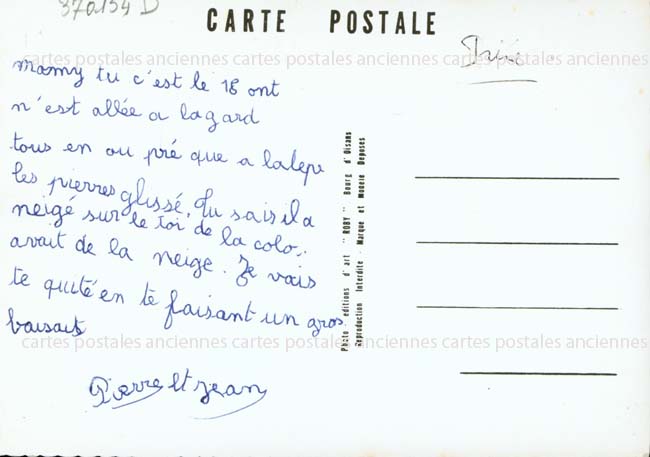 370154 D
CARTE POSTALE
cartes postales anciennes cartes postales anciennes cartes postales anciennes
mamy tu c'est le 18 ont
n'est allée a lagard
tous en ou pré que a lalepe
les pierres glissé. tu sais il a
neigé sur le toi de la colo,
avait de la neige. Je vais
te quité en te faisant un gros
baisait
cartes postales anciennes cartes postales anciennes cartes postales anciennes
Pierre et jean
Photo éditions d'art "ROBY" Bourg d'Oisans
Reproduction Interdite - Marque et Modèle Déposés